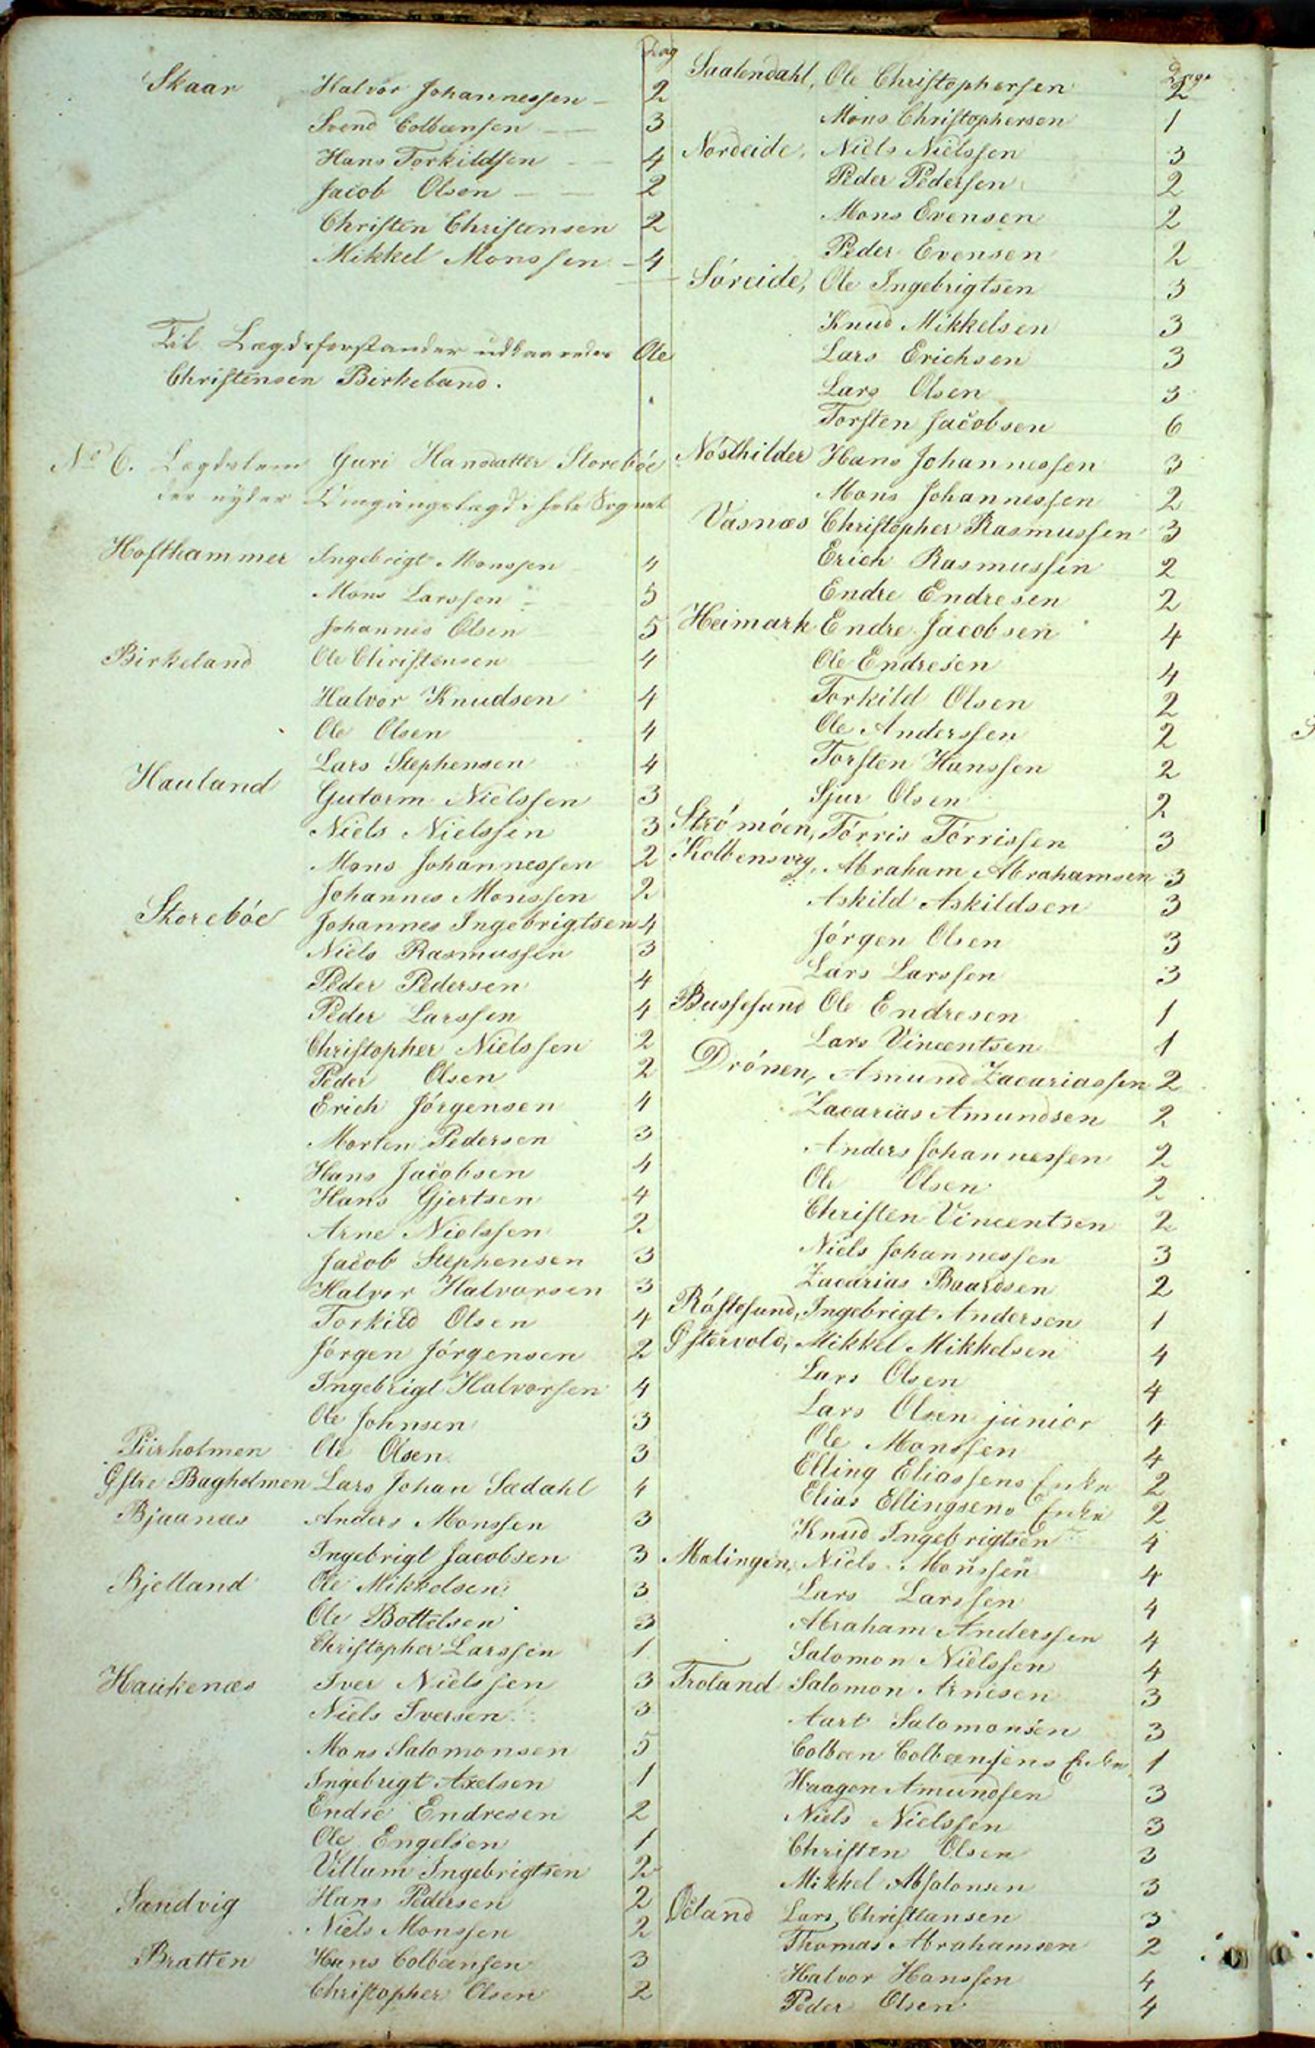 Dag
Skaar Halvor Johannessen 2
Svend Colbeensen 3
Hans Torkildsen 4
Jacob Olsen 2
Christen Christensen 2
Mikkel Monssen 4
Til Lægdsforstander udkaaredes Ole
Christensen Birkeland.
No 6. Lægdslem Guri Hansdatter Storebøe
der nyder Omgangslægd i hele Sognet
Hofthammer Ingebrigt Monssen 4
Mons Larssen 5
Johannes Olsen 5
Birkeland Ole Christensen 4
Halvor Knudsen 4
Ole Olsen 4
Lars Stephensen 4
Hauland Gutorm Nielssen 3
Niels Nielssen 3
Mons Johannessen 2
Johannes Monssen 2
Storebøe Johannes Ingebrigtsen 4
Niels Rasmussen 3
Peder Pedersen 4
Peder Larssen 4
Christopher Nielssen 2
Peder Olsen 2
Erich Jørgensen 4
Morten Pedersen 3
Hans Jacobsen 4
Hans Gjertsen 4
Arne Nielssen 2
Jacob Stephensen 3
Halvor Halvorsen 3
Torkild Olsen 4
Jørgen Jørgensen 2
Ingebrigt Halvorsen 4
Ole Johnsen 3
Piirholmen Ole Olsen 3
Østre Bagholmen Lars Johan Sædahl 4
Bjaanæs Anders Monssen 3
Ingebrigt Jacobsen 3
Bjelland Ole Mikkelsen 3
Ole Bottelsen 3
Christopher Larssen 1
Haukenæs Iver Nielssen 3
Niels Iversen 3
Mons Salomonsen 5
Ingebrigt Axelsen 1
Endre Endresen 2
Ole Engelsen 1
Villum Ingebrigtsen 2
Sandvig Hans Pedersen 2
Niels Monssen 2
Bratten Hans Colbeensen 3
Christopher Olsen 2
Dage
Saalendahl, Ole Christophersen 2
Mons Christophersen 1
Nordeide, Niels Nielssen 3
Peder Pedersen 2
Mons Evensen 2
Peder Evensen 2
Søreide, Ole Ingebrigtsen 3
Knud Mikkelsen 3
Lars Erichsen 3
Lars Olsen 3
Torsten Jacobsen 6
Nøsthilder Hans Johannessen 3
Mons Johannessen 2
Vasnæs Christopher Rasmussen 3
Erich Rasmussen 2
Endre Endresen 2
Heimark Endre Jacobsen 4
Ole Endresen 4
Torkild Olsen 2
Ole Anderssen 2
Torsten Hanssen 2
Sjur Olsen 2
Strømøen, Tørris Tørrissen 3
Kolbensvig, Abraham Abrahamsen 3
Askild Askildsen 3
Jørgen Olsen 3
Lars Larssen 3
Bussesund Ole Endresen 1
Lars Vincentsen 1
Drønen, Amund Zacariassen 2
Zacarias Amundsen 2
Anders Johannessen 2
Ole Olsen 2
Christen Vincentsen 2
Niels Johannessen 3
Zacarias Baardsen 2
Røstesund, Ingebrigt Andersen 1
Østervold, Mikkel Mikkelsen 4
Lars Olsen 4
Lars Olsen junior 4
Ole Monssen 4
Elling Eliassens Enke 2
Elias Ellingsens Enke 2
Knud Ingebrigtsen 4
Malingen, Niels Monssen 4
Lars Larssen 4
Abraham Anderssen 4
Salomon Nielssen 4
Troland Salomon Arnesen 3
Aart Salomonsen 3
Colbeen Colbeensens Enke 1
Haagen Amundsen 3
Niels Nielssen 3
Christen Olsen 3
Mikkel Absalonsen 3
Øeland Lars Christiansen 3
Thomas Abrahamsen 2
Halvor Hanssen 4
Peder Olsen 4